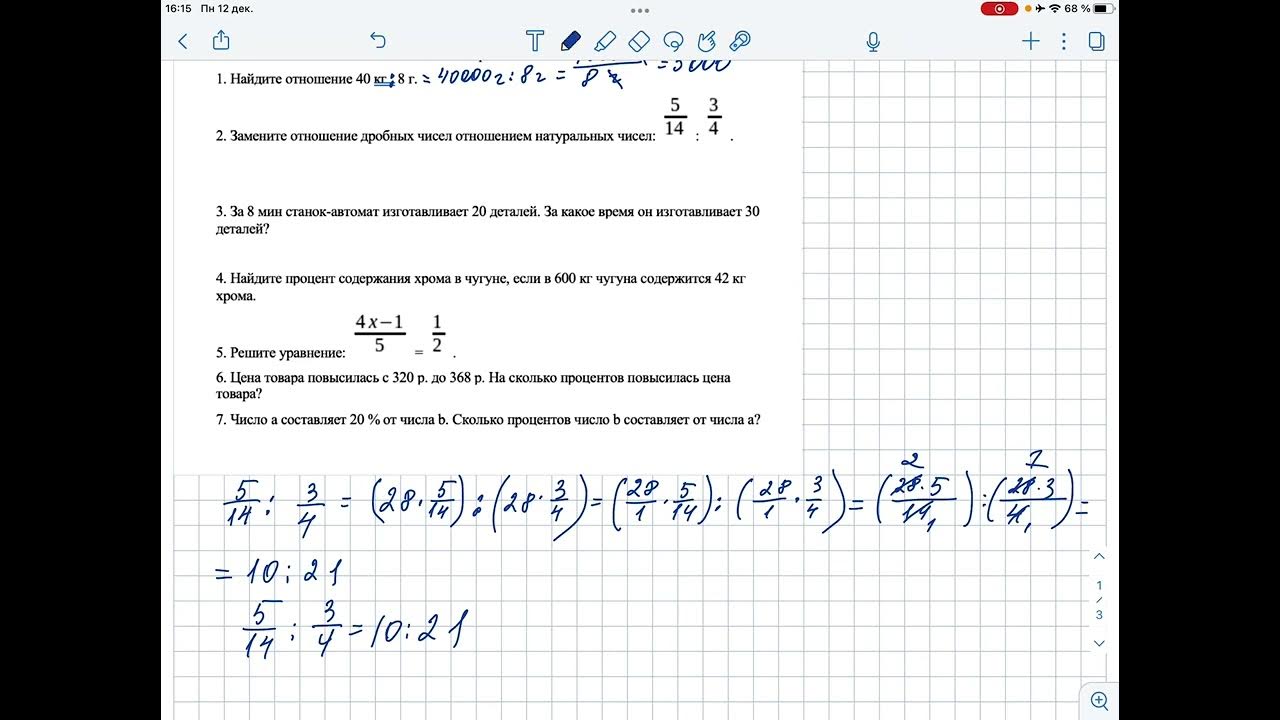 16:15 Пн 12 дек. 68 %
1. Найдите отношение 40 кг : 8 г. = 40000г : 8г = 8 г = 5000
2. Замените отношение дробных чисел отношением натуральных чисел: 5/14 : 3/4 .
3. За 8 мин станок-автомат изготавливает 20 деталей. За какое время он изготавливает 30
деталей?
4. Найдите процент содержания хрома в чугуне, если в 600 кг чугуна содержится 42 кг
хрома.
5. Решите уравнение: 4x−1/5 = 1/2 .
6. Цена товара повысилась с 320 р. до 368 р. На сколько процентов повысилась цена
товара?
7. Число a составляет 20 % от числа b. Сколько процентов число b составляет от числа a?
5/14 : 3/4 = (28 · 5/14) : (28 · 3/4) = (28/1 · 5/14) : (28/1 · 3/4) = (28 · 5/14) : (28 · 3/4) =
2 7
1 1
= 10 : 21
5/14 : 3/4 = 10 : 21
1
/
3